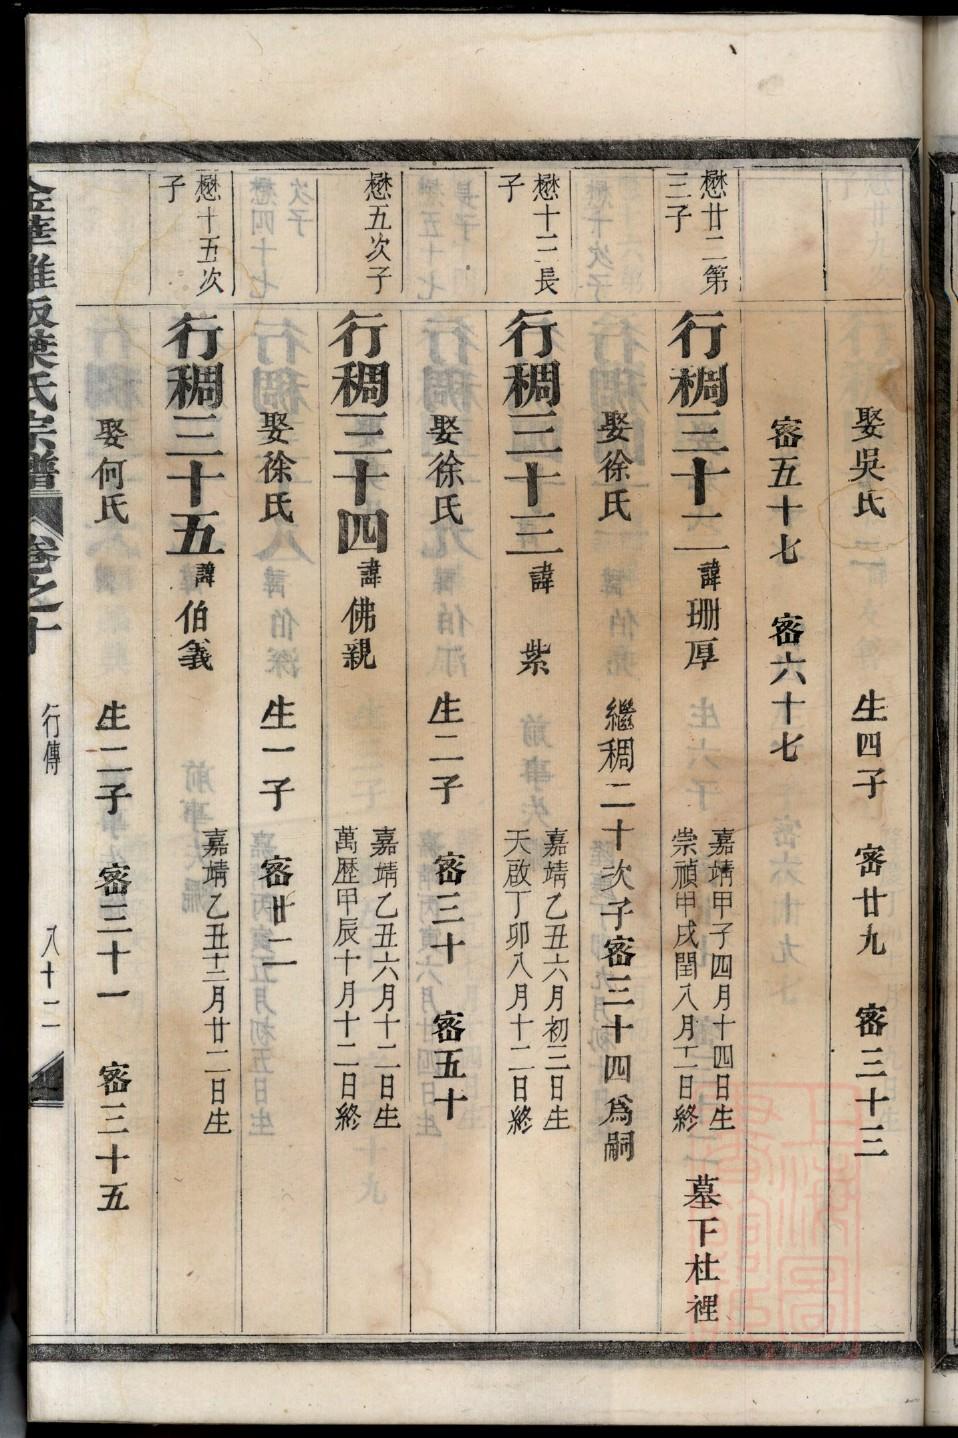 娶吳氏 生四子 密廿九 密三十三
密五十七 密六十七
懋廿二第三子
行稠三十二 諱珊厚 嘉靖甲子四月十四日生 崇禎甲戌閏八月十一日終 墓下杜裡
娶徐氏 繼稠二十次子密三十四爲嗣
懋十三長子
行稠三十三 諱紫 嘉靖乙丑六月初三日生 天啟丁卯八月十二日終
娶徐氏 生二子 密三十 密五十
懋五次子
行稠三十四 諱佛親 嘉靖乙丑六月十二日生 萬歷甲辰十月十二日終
娶徐氏 生一子 密廿二
懋十五次子
行稠三十五 諱伯義 嘉靖乙丑十二月廿二日生
娶何氏 生二子 密三十一 密三十五
氏宗譜 卷之十 行傳 八十二